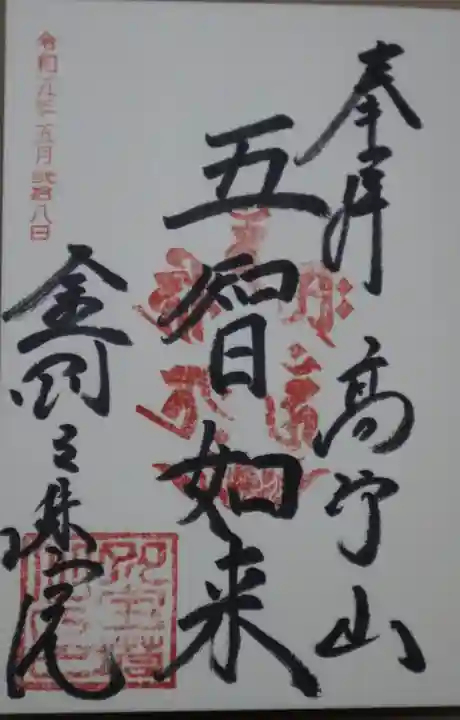 奉拝 高野山
五智如来
金剛三昧院
令和元年五月弐拾八日